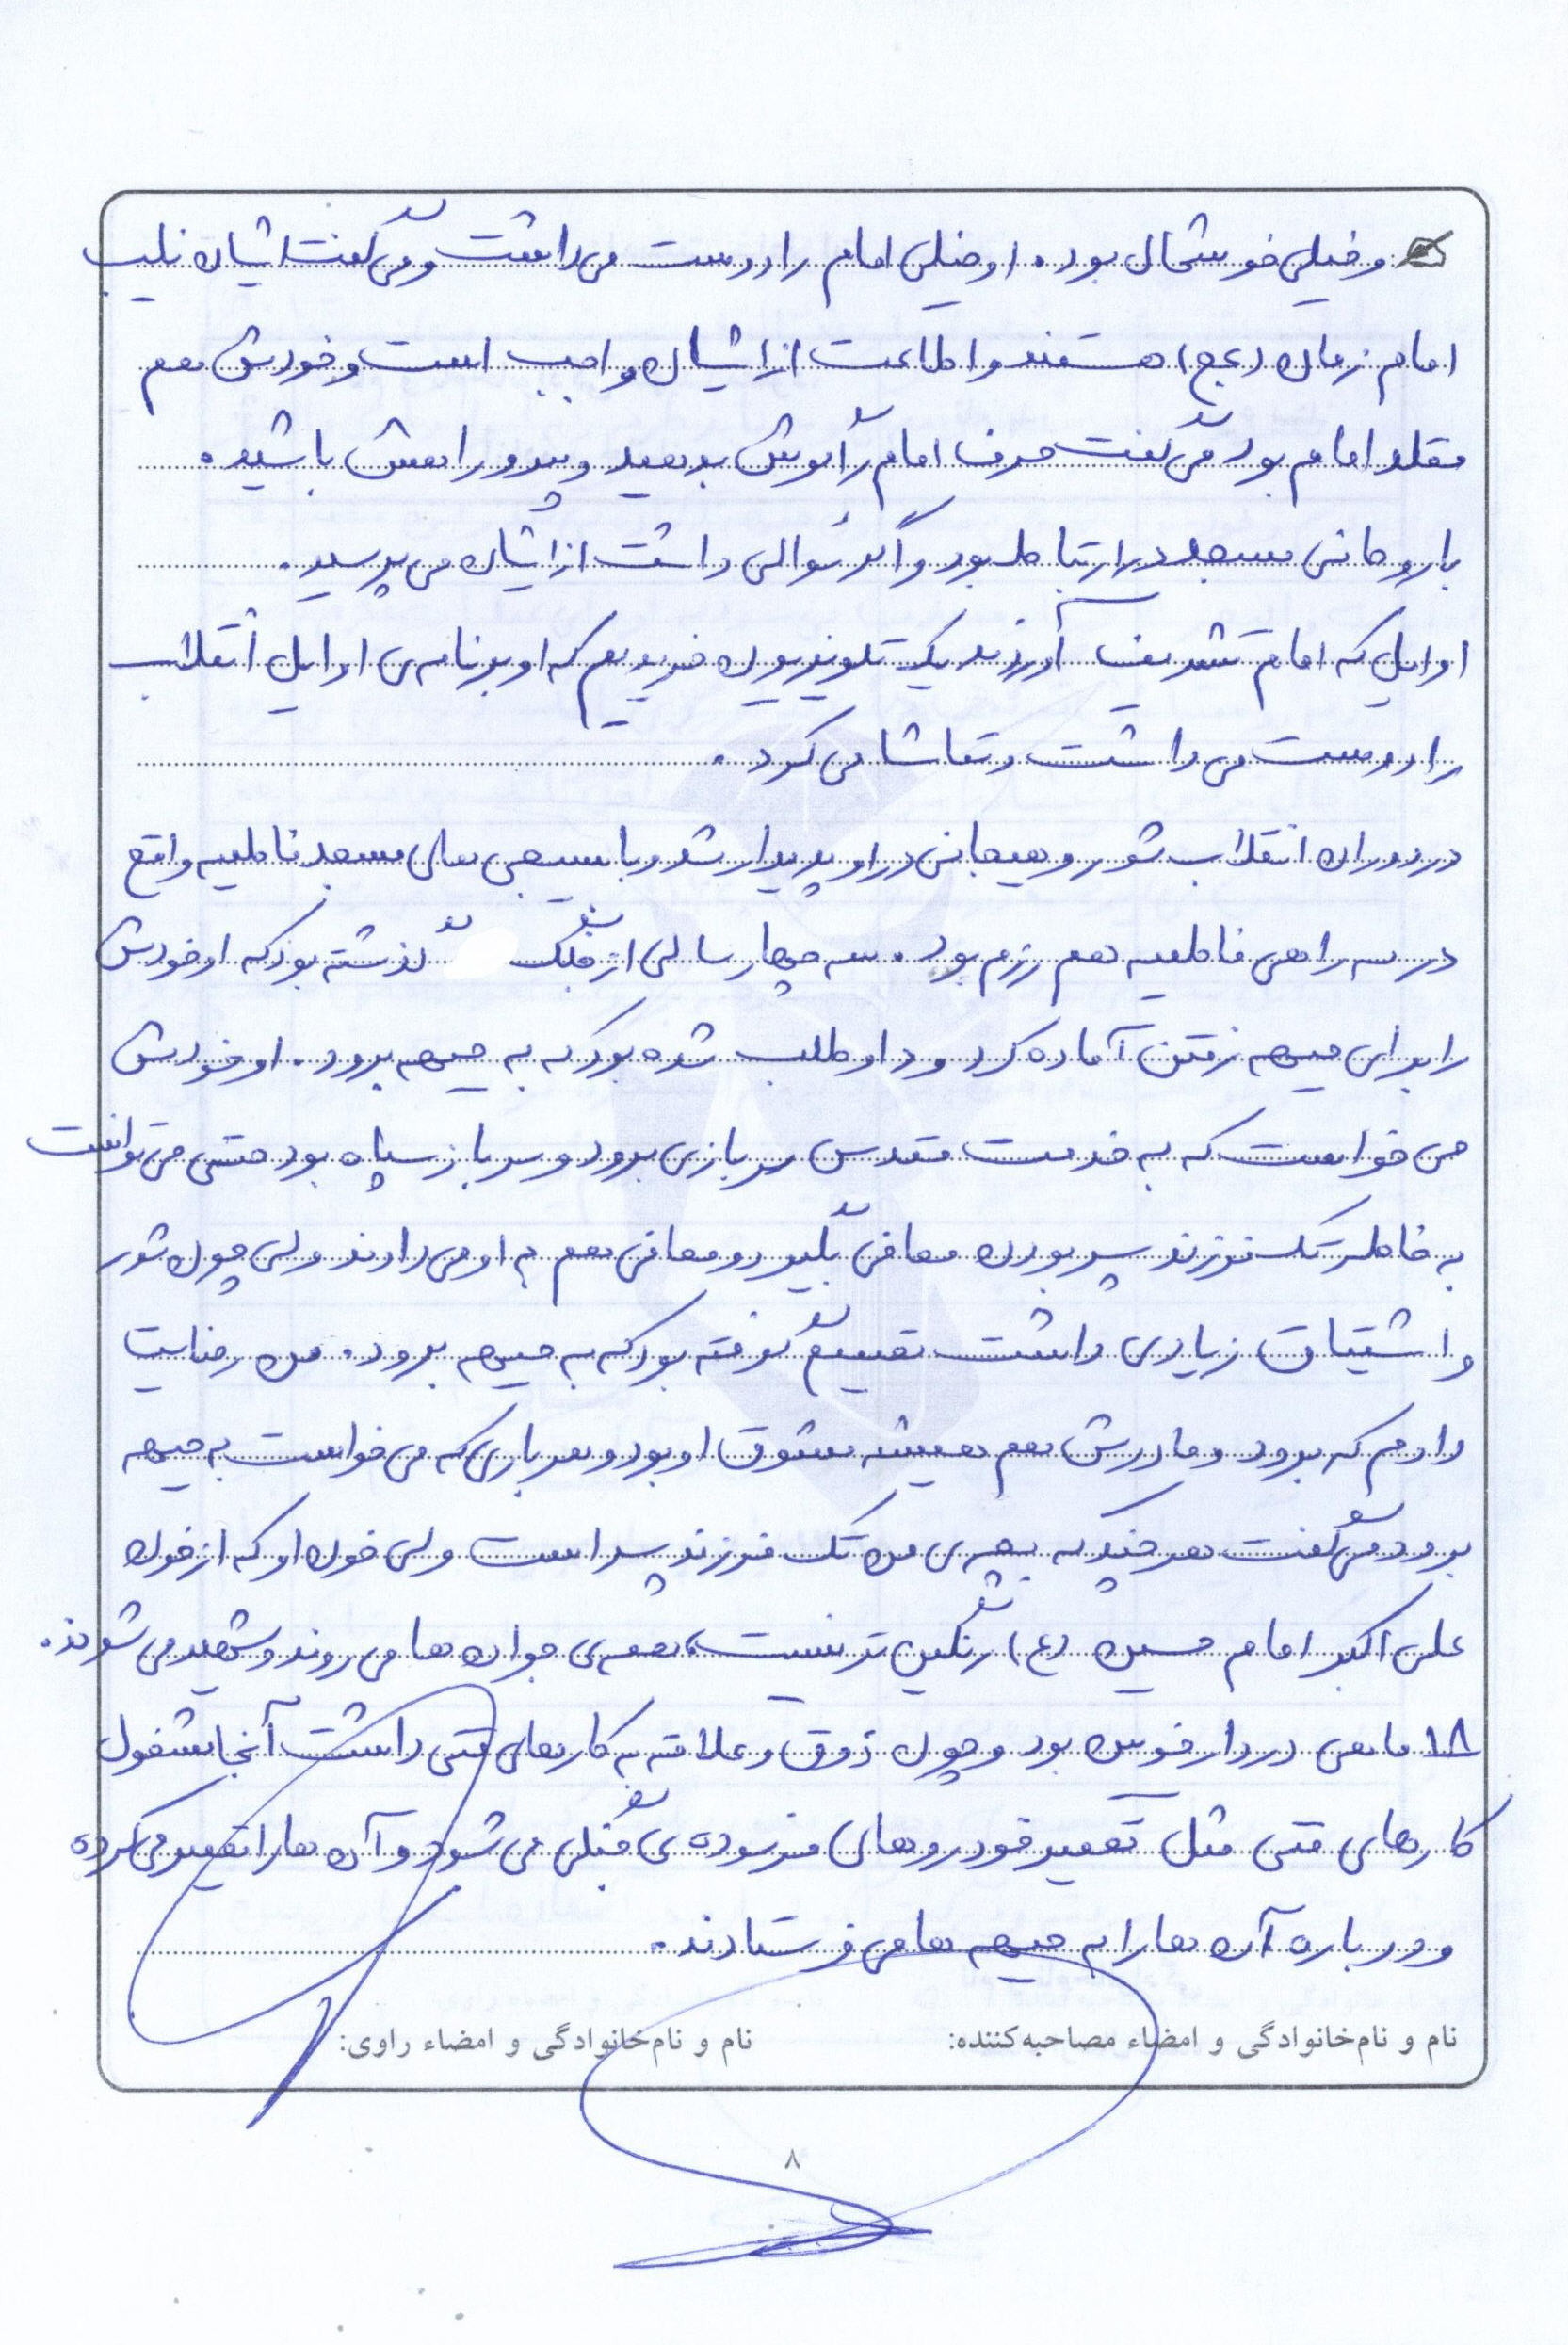 و خیلی خوشحال بود. او خیلی امام را دوست می داشت و می گفت ایشان نایب
امام زمان (عج) هستند و اطاعت از ایشان واجب است و خودش هم
مقلد امام بود می گفت حرف امام را گوش بدهید و پیرو راهش باشید.
با روحانی مسجد در ارتباط بود و اگر سوالی داشت از ایشان می پرسید.
اوایل که امام تشریف آوردند یک تلویزیون خریدیم که او برنامه ی اوایل انقلاب
را دوست می داشت و تماشا می کرد.
در دوران انقلاب شور و هیجانی در او پدیدار شد و با بسیجی های مسجد فاطمیه واقع
در سه راهی فاطمیه هم رزم بود. سه چهار سالی از جنگ گذشته بود که او خودش
را برای جبهه رفتن آماده کرد و داوطلب شده بود که به جبهه برود. او خودش
می خواست که به خدمت مقدس سربازی برود و سرباز سپاه بود حتی می توانست
به خاطر تک فرزند پسر بودن معافی بگیرد و معافی هم به او می دادند ولی چون شور
و اشتیاق زیادی داشت تصمیم گرفته بود که به جبهه برود. من رضایت
دادم که برود و مادرش هم همیشه مشوق او بود و هر باری که می خواست به جبهه
برود می گفت هر چند که بچه ی من تک فرزند پسر است ولی خون او که از خون
علی اکبر امام حسین (ع) رنگین تر نیست، همه ی جوان ها می روند و شهید می شوند.
۱۸ ماهی در دارخوین بود و چون ذوق و علاقه به کارهای فنی داشت آنجا مشغول
کارهای فنی مثل تعمیر خودروهای فرسوده ی جنگی می شود و آن ها را تعمیر می کرده
و دوباره آن ها را به جبهه ها می فرستادند.
نام و نام‌خانوادگی و امضاء مصاحبه‌کننده: نام و نام‌خانوادگی و امضاء راوی:
۸